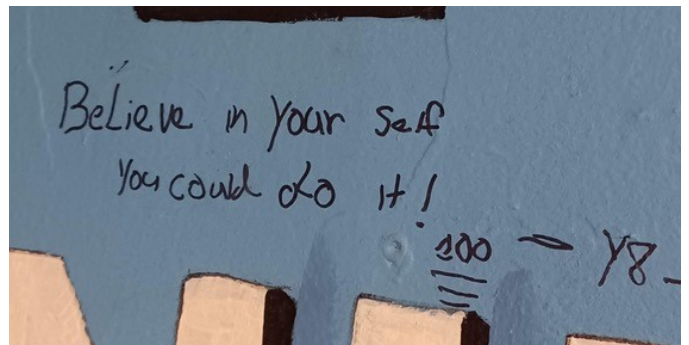 Believe in your self
You could do it!
100 - Y8-